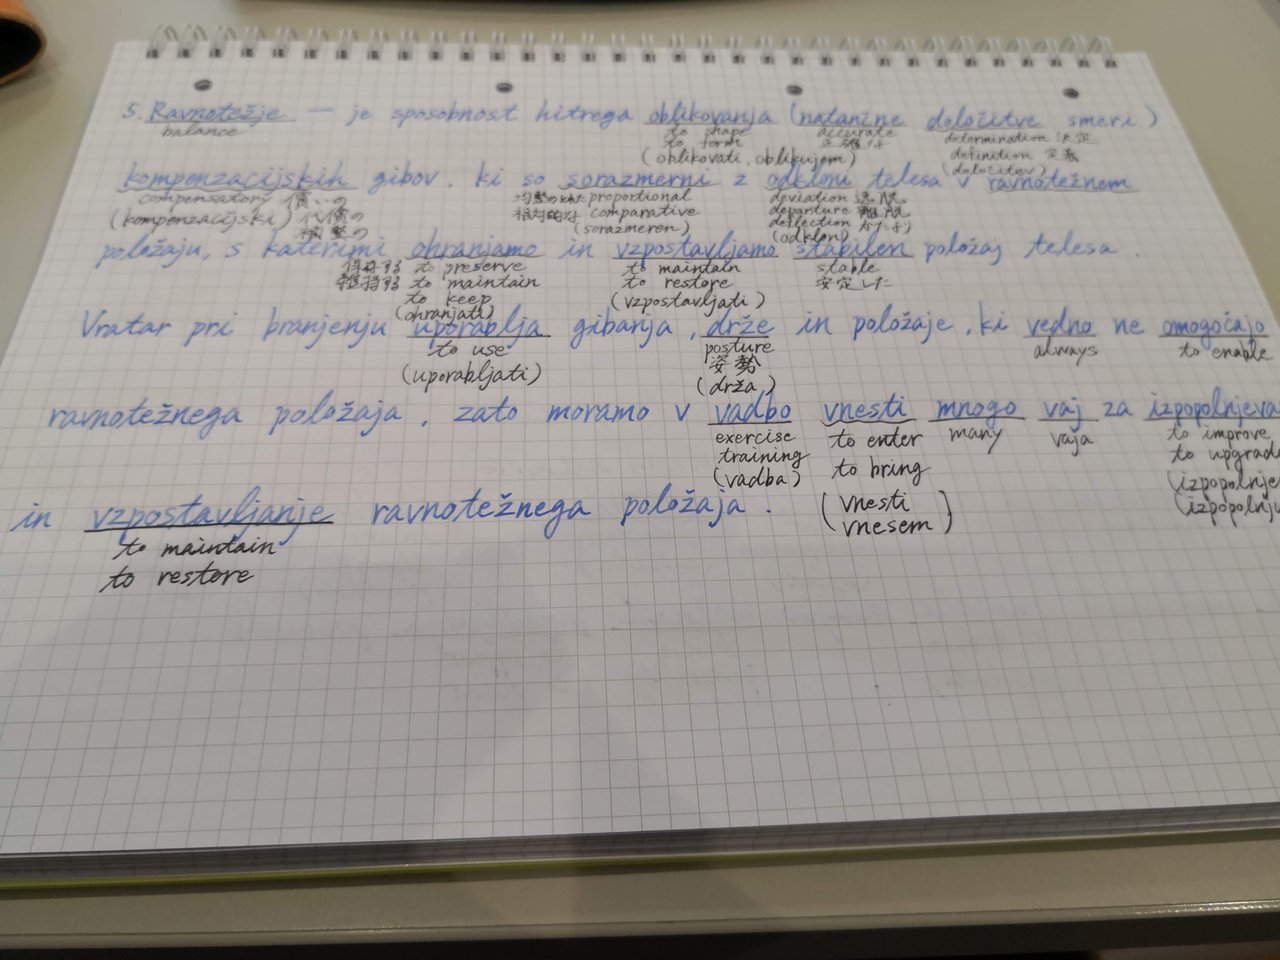 5. Ravnotežje — je sposobnost hitrega oblikovanja (natančne določitve smeri)
balance to shape accurate determination 決定
to form 正確な definition 定義
(oblikovati, oblikujem) (določitev)
kompenzacijskih gibov, ki so sorazmerni z odkloni telesa v ravnotežnem
compensatory 償いの proportional deviation 逸脱
(kompenzacijski) 代償の 相対的な comparative departure 離脱
(sorazmeren) deflection
(odklon)
položaju, s katerimi ohranjamo in vzpostavljamo stabilen položaj telesa.
保存する to preserve to maintain stable
維持する to maintain to restore 安定した
to keep (vzpostavljati)
(ohranjati)
Vratar pri branjenju uporablja gibanja, drže in položaje, ki vedno ne omogočajo
to use posture always to enable
(uporabljati) 姿勢
(drža)
ravnotežnega položaja, zato moramo v vadbo vnesti mnogo vaj za izpopolnjeva
exercise to enter many vaja to improve
training to bring to upgrad
(vadba) (vnesti (izpopolnje
vnesem) (izpopolnju
in vzpostavljanje ravnotežnega položaja.
to maintain
to restore